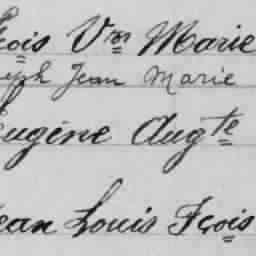 Fçois Vor Marie
Joseph Jean Marie
Eugène Augte
Jean Louis Fçois